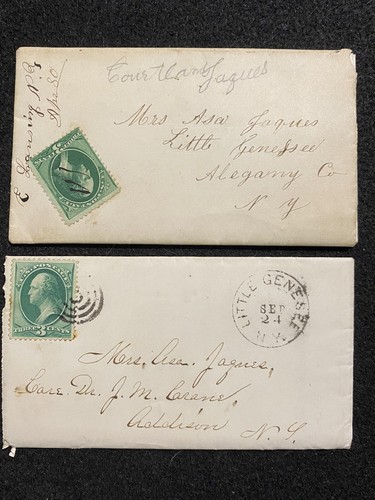 Courtland Jaques
Mrs Asa Jaques
Little Genesee
Alegany Co
N Y
U.S. POSTAGE
THREE 3 CENTS
LITTLE GENESEE
SEP
24
N.Y.
Mrs. Asa Jaques,
Care Dr. J. M. Crane,
Addison
N. Y.